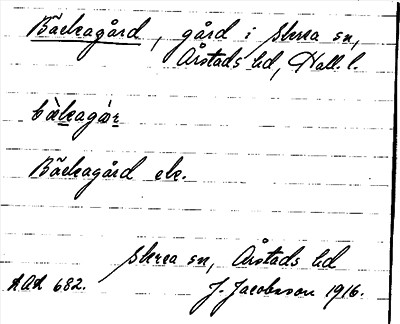 Bäckagård, gård i Skrea sn,
Årstads hd, Hall. l.
Bäckagård ek.
Skrea sn, Årstads hd
AAd 682. J. Jacobsson 1916.